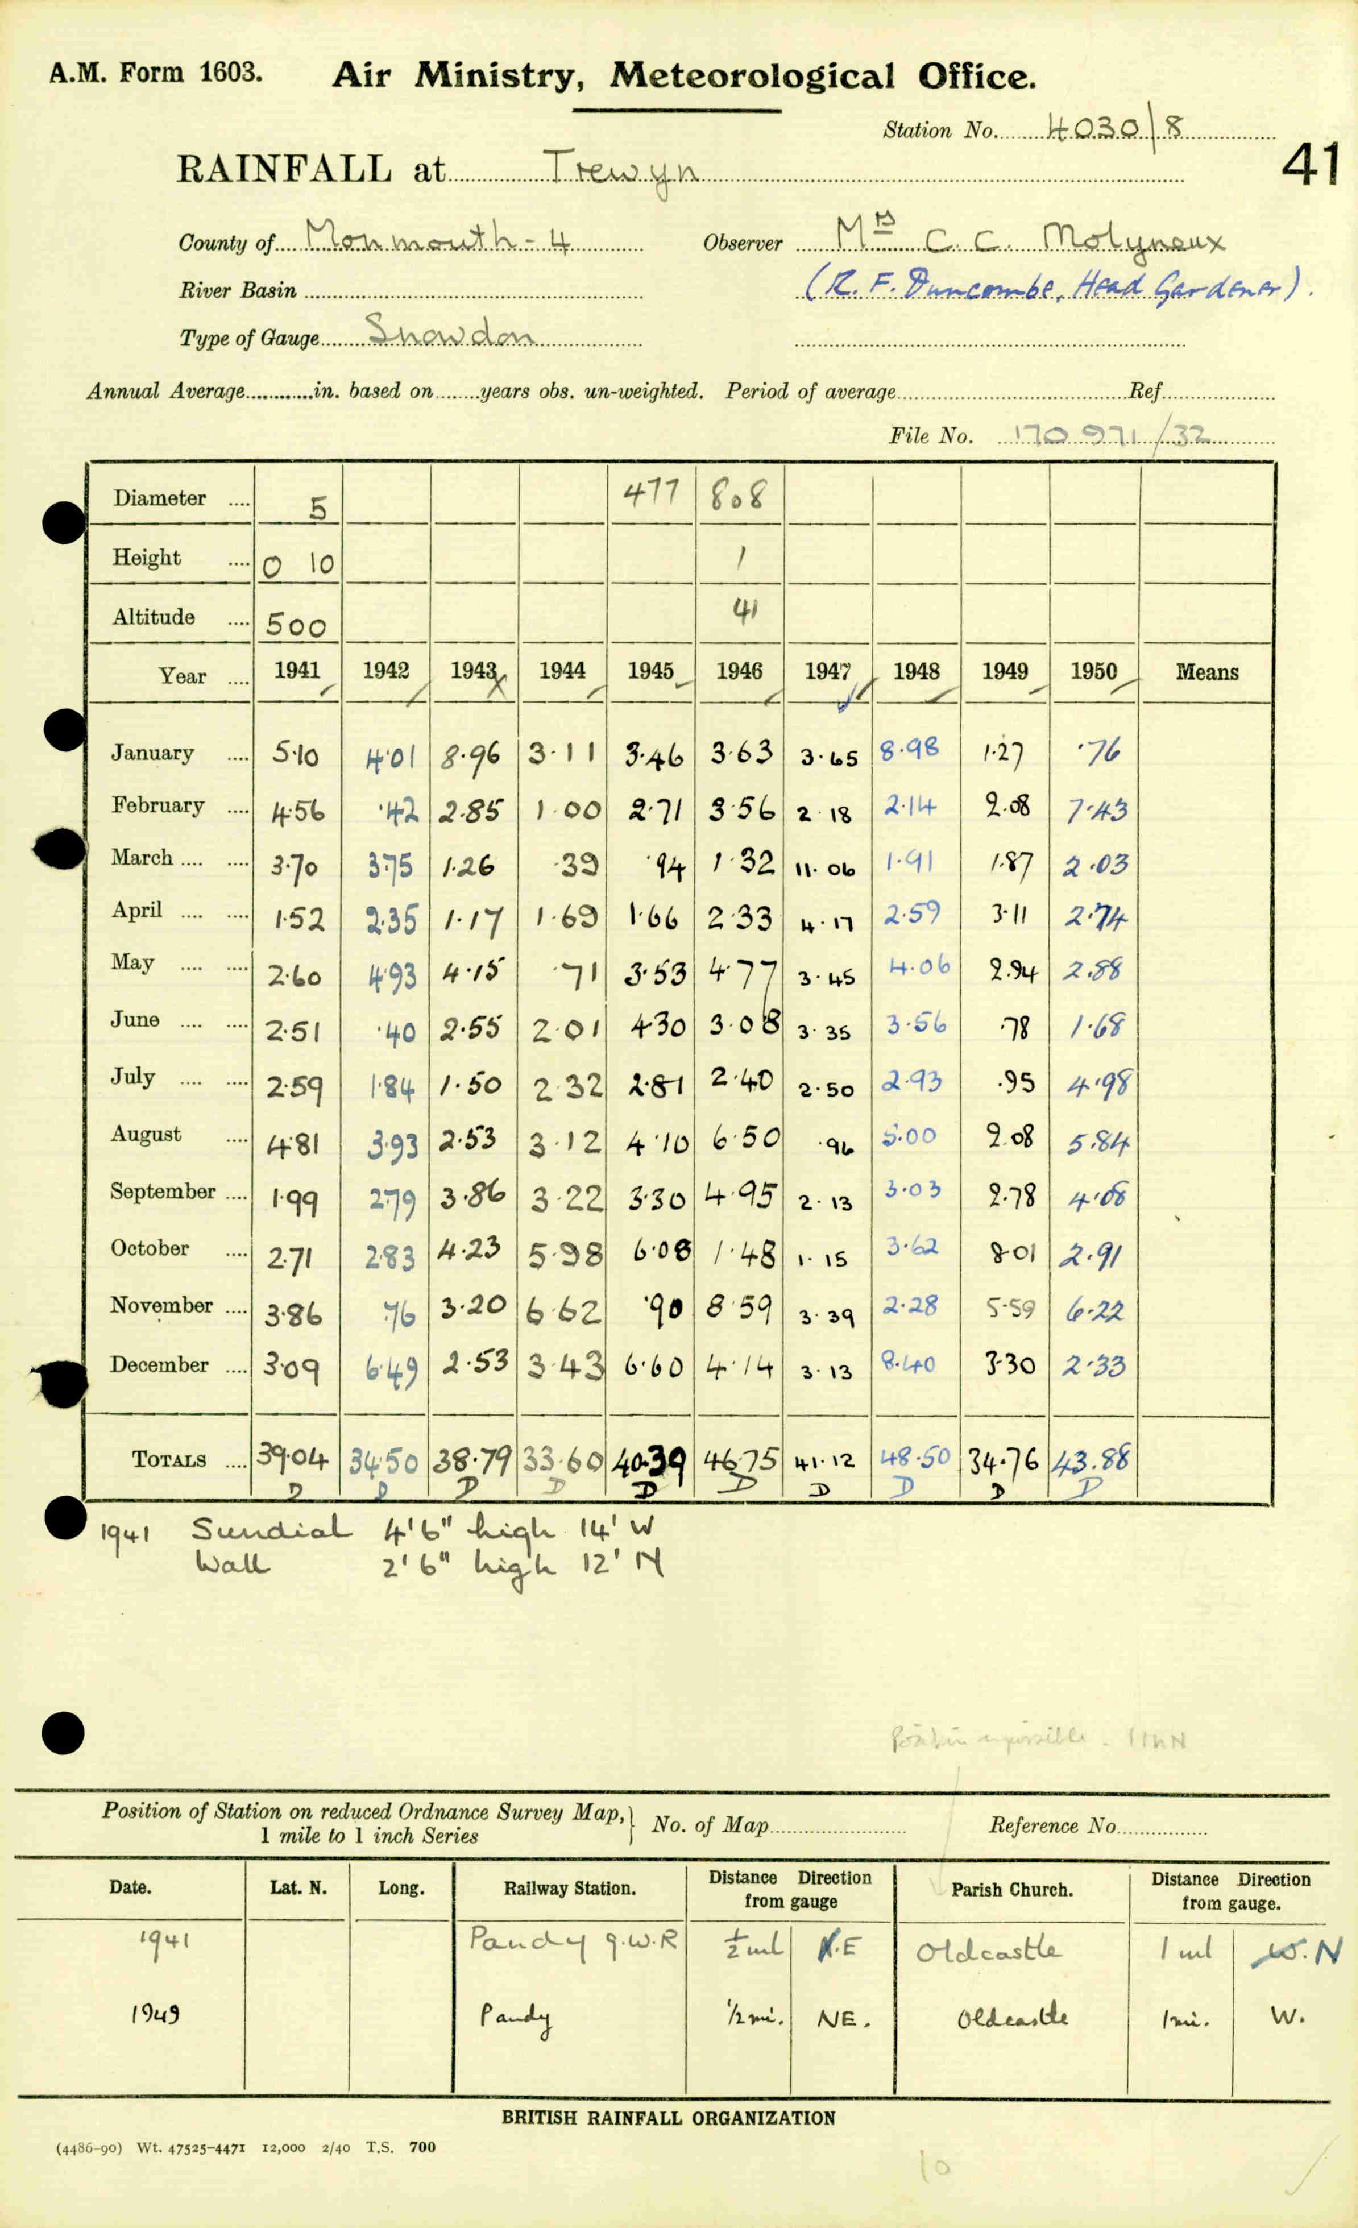 A.M. Form 1603. Air Ministry, Meteorological Office.
Station No. 4030/8
41
RAINFALL at Trewyn
County of Monmouth - 4 Observer Mrs C. C. Molyneux
River Basin (R. F. Duncombe, Head Gardener).
Type of Gauge Snowdon
Annual Average in. based on years obs. un-weighted. Period of average Ref
File No. 170971/32
Diameter 5 477 808
Height 0 10 1
Altitude 500 41
Year 1941 1942 1943 1944 1945 1946 1947 1948 1949 1950 Means
January 5.10 4.01 8.96 3.11 3.46 3.63 3.65 8.98 1.27 .76
February 4.56 .42 2.85 1.00 2.71 3.56 2.18 2.14 2.08 7.43
March 3.70 3.75 1.26 .39 .94 1.32 11.06 1.91 1.87 2.03
April 1.52 2.35 1.17 1.69 1.66 2.33 4.17 2.59 3.11 2.74
May 2.60 4.93 4.15 .71 3.53 4.77 3.45 4.06 2.94 2.88
June 2.51 .40 2.55 2.01 4.30 3.08 3.35 3.56 .78 1.68
July 2.59 1.84 1.50 2.32 2.81 2.40 2.50 2.93 .95 4.98
August 4.81 3.93 2.53 3.12 4.10 6.50 .96 5.00 2.08 5.84
September 1.99 2.79 3.86 3.22 3.30 4.95 2.13 3.03 2.78 4.08
October 2.71 2.83 4.23 5.98 6.08 1.48 1.15 3.62 8.01 2.91
November 3.86 .76 3.20 6.62 .90 8.59 3.39 2.28 5.59 6.22
December 3.09 6.49 2.53 3.43 6.60 4.14 3.13 8.40 3.30 2.33
TOTALS 39.04 34.50 38.79 33.60 40.39 46.75 41.12 48.50 34.76 43.88
D D D D D D D D D D
1941 Sundial 4'6" high 14' W
Wall 2'6" high 12' N
Position of Station on reduced Ordnance Survey Map, 1 mile to 1 inch Series } No. of Map Reference No
Date. Lat. N. Long. Railway Station. Distance Direction from gauge Parish Church. Distance Direction from gauge.
1941 Pandy G.W.R ½ ml N.E Oldcastle 1 ml W. N
1949 Pandy ½ mi. NE. Oldcastle 1 mi. W.
BRITISH RAINFALL ORGANIZATION
(4486-90) Wt. 47525-4471 12,000 2/40 T.S. 700
10